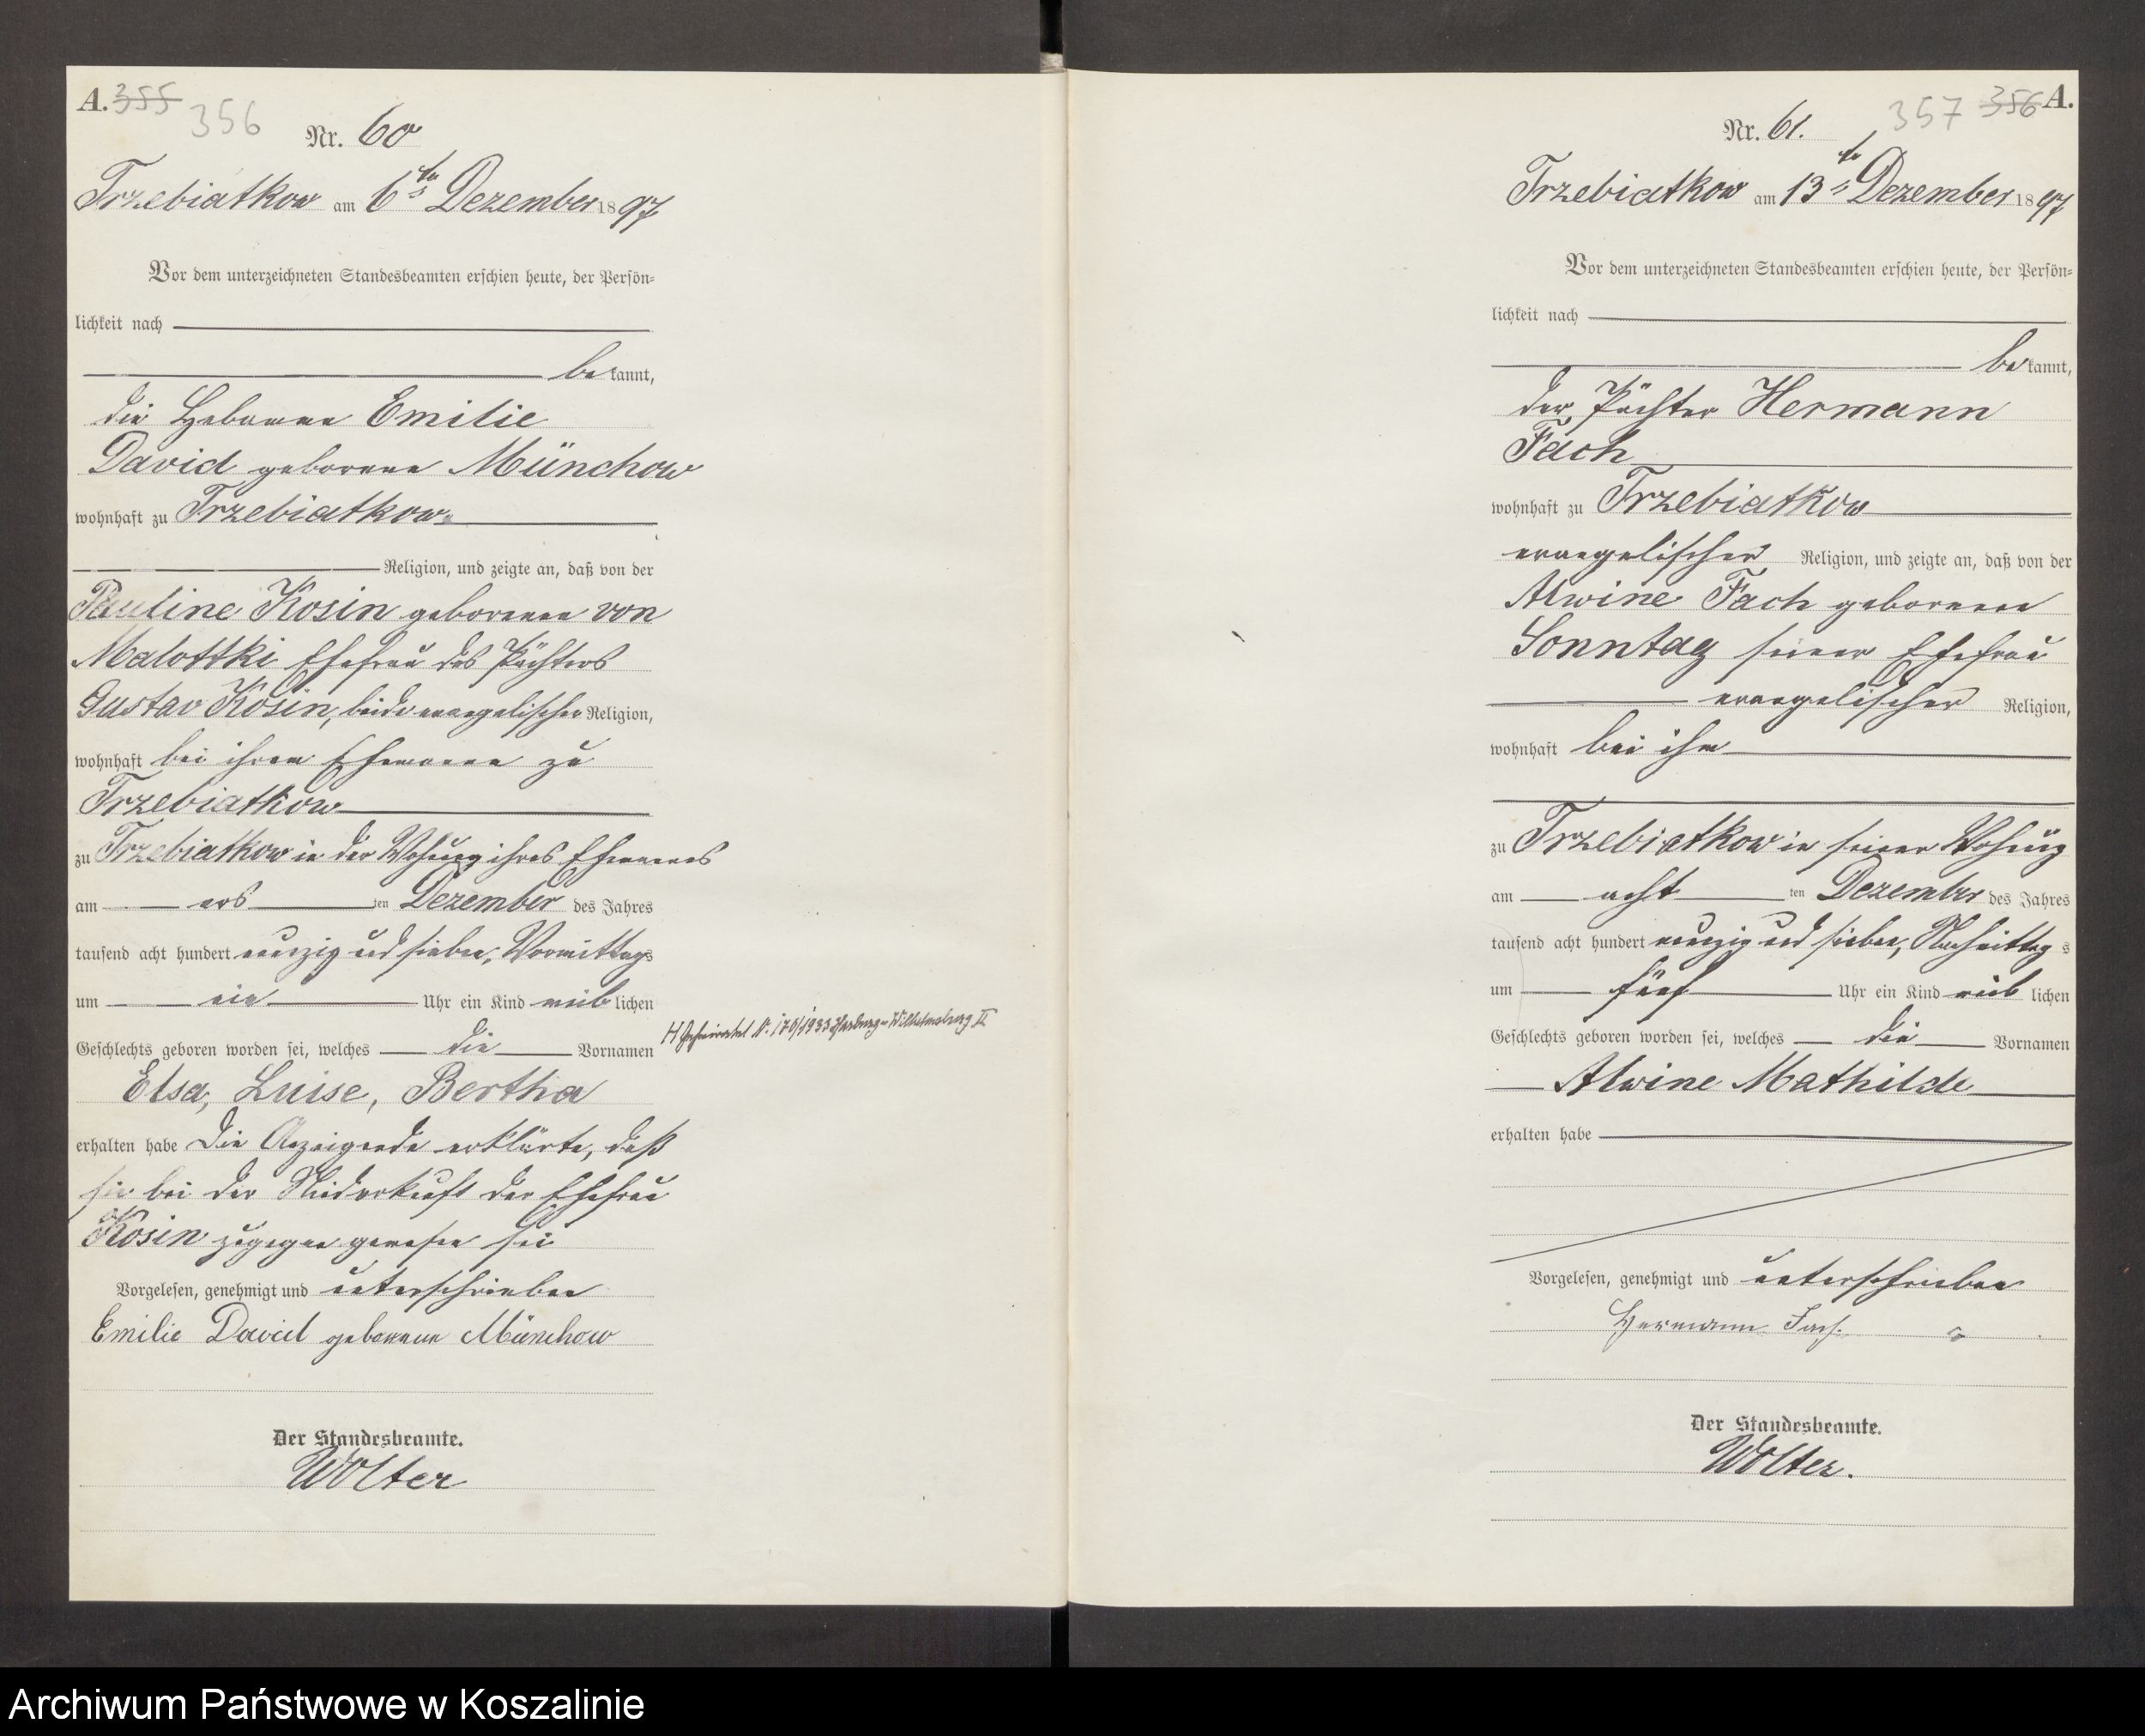 A. 355 356
Nr. 60
Trzebiatkow am 6ten Dezember 1897
Vor dem unterzeichneten Standesbeamten erschien heute, der Persön-
lichkeit nach
bekannt,
die Hebamme Emilie
David geborene Münchow
wohnhaft zu Trzebiatkow
Religion, und zeigte an, daß von der
Pauline Kosin geborenen von
Malottki Ehefrau des Pächters
Gustav Kosin, beide evangelischer Religion,
wohnhaft bei ihrem Ehemanne zu
Trzebiatkow
zu Trzebiatkow in der Wohnung ihres Ehemannes
am ers ten Dezember des Jahres
tausend acht hundert neunzig und sieben, Vormittags
um ein Uhr ein Kind weiblichen
Geschlechts geboren worden sei, welches die Vornamen
H Geheiratet Nr. 170/1933 Harburg-Wilhelmsburg II
Elsa, Luise, Bertha
erhalten habe Die Anzeigende erklärte, daß
sie bei der Niederkunft der Ehefrau
Kosin zugegen gewesen sei
Vorgelesen, genehmigt und unterschrieben
Emilie David geborene Münchow
Der Standesbeamte.
Wolter
357 356 A.
Nr. 61.
Trzebiatkow am 13ten Dezember 1897
Vor dem unterzeichneten Standesbeamten erschien heute, der Persön-
lichkeit nach
bekannt,
der Pächter Hermann
Fach
wohnhaft zu Trzebiatkow
evangelischer Religion, und zeigte an, daß von der
Alwine Fach geborenen
Sonntag seiner Ehefrau
evangelischer Religion,
wohnhaft bei ihm
zu Trzebiatkow in seiner Wohnung
am acht ten Dezember des Jahres
tausend acht hundert neunzig und sieben, Nachmittags
um fünf Uhr ein Kind weiblichen
Geschlechts geboren worden sei, welches die Vornamen
Alwine Mathilde
erhalten habe
Vorgelesen, genehmigt und unterschrieben
Hermann Fach.
Der Standesbeamte.
Wolter.
Archiwum Państwowe w Koszalinie